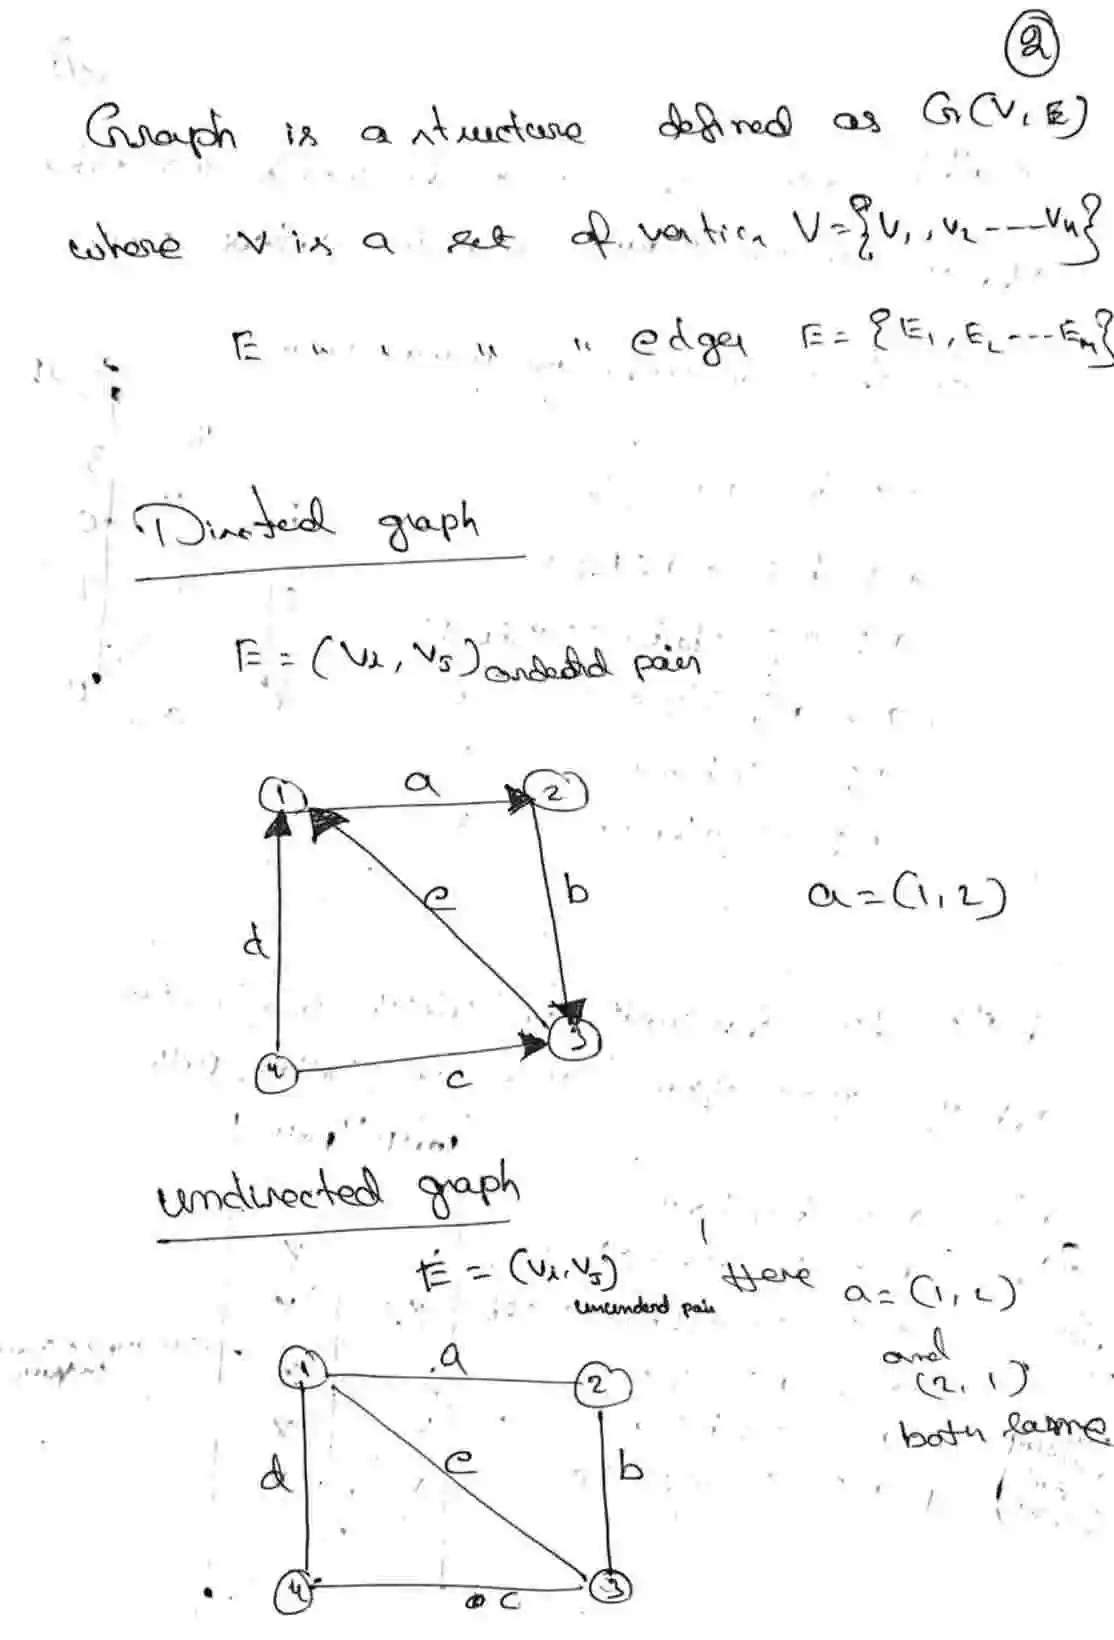 2
Graph is a structure defined as G(V, E)
where V is a set of vertics V={V1, V2 ---- Vn}
E " " " " edges E = {E1, E2 --- Em}
Directed graph
E = (Vi, VJ) ordered pair
1 a 2
e b
d
a=(1,2)
3
4
c
undirected graph
E = (Vi, VJ) Here a=(1,2)
unordered pair
and
(2,1)
both same
1 a 2
d e b
4 c 3